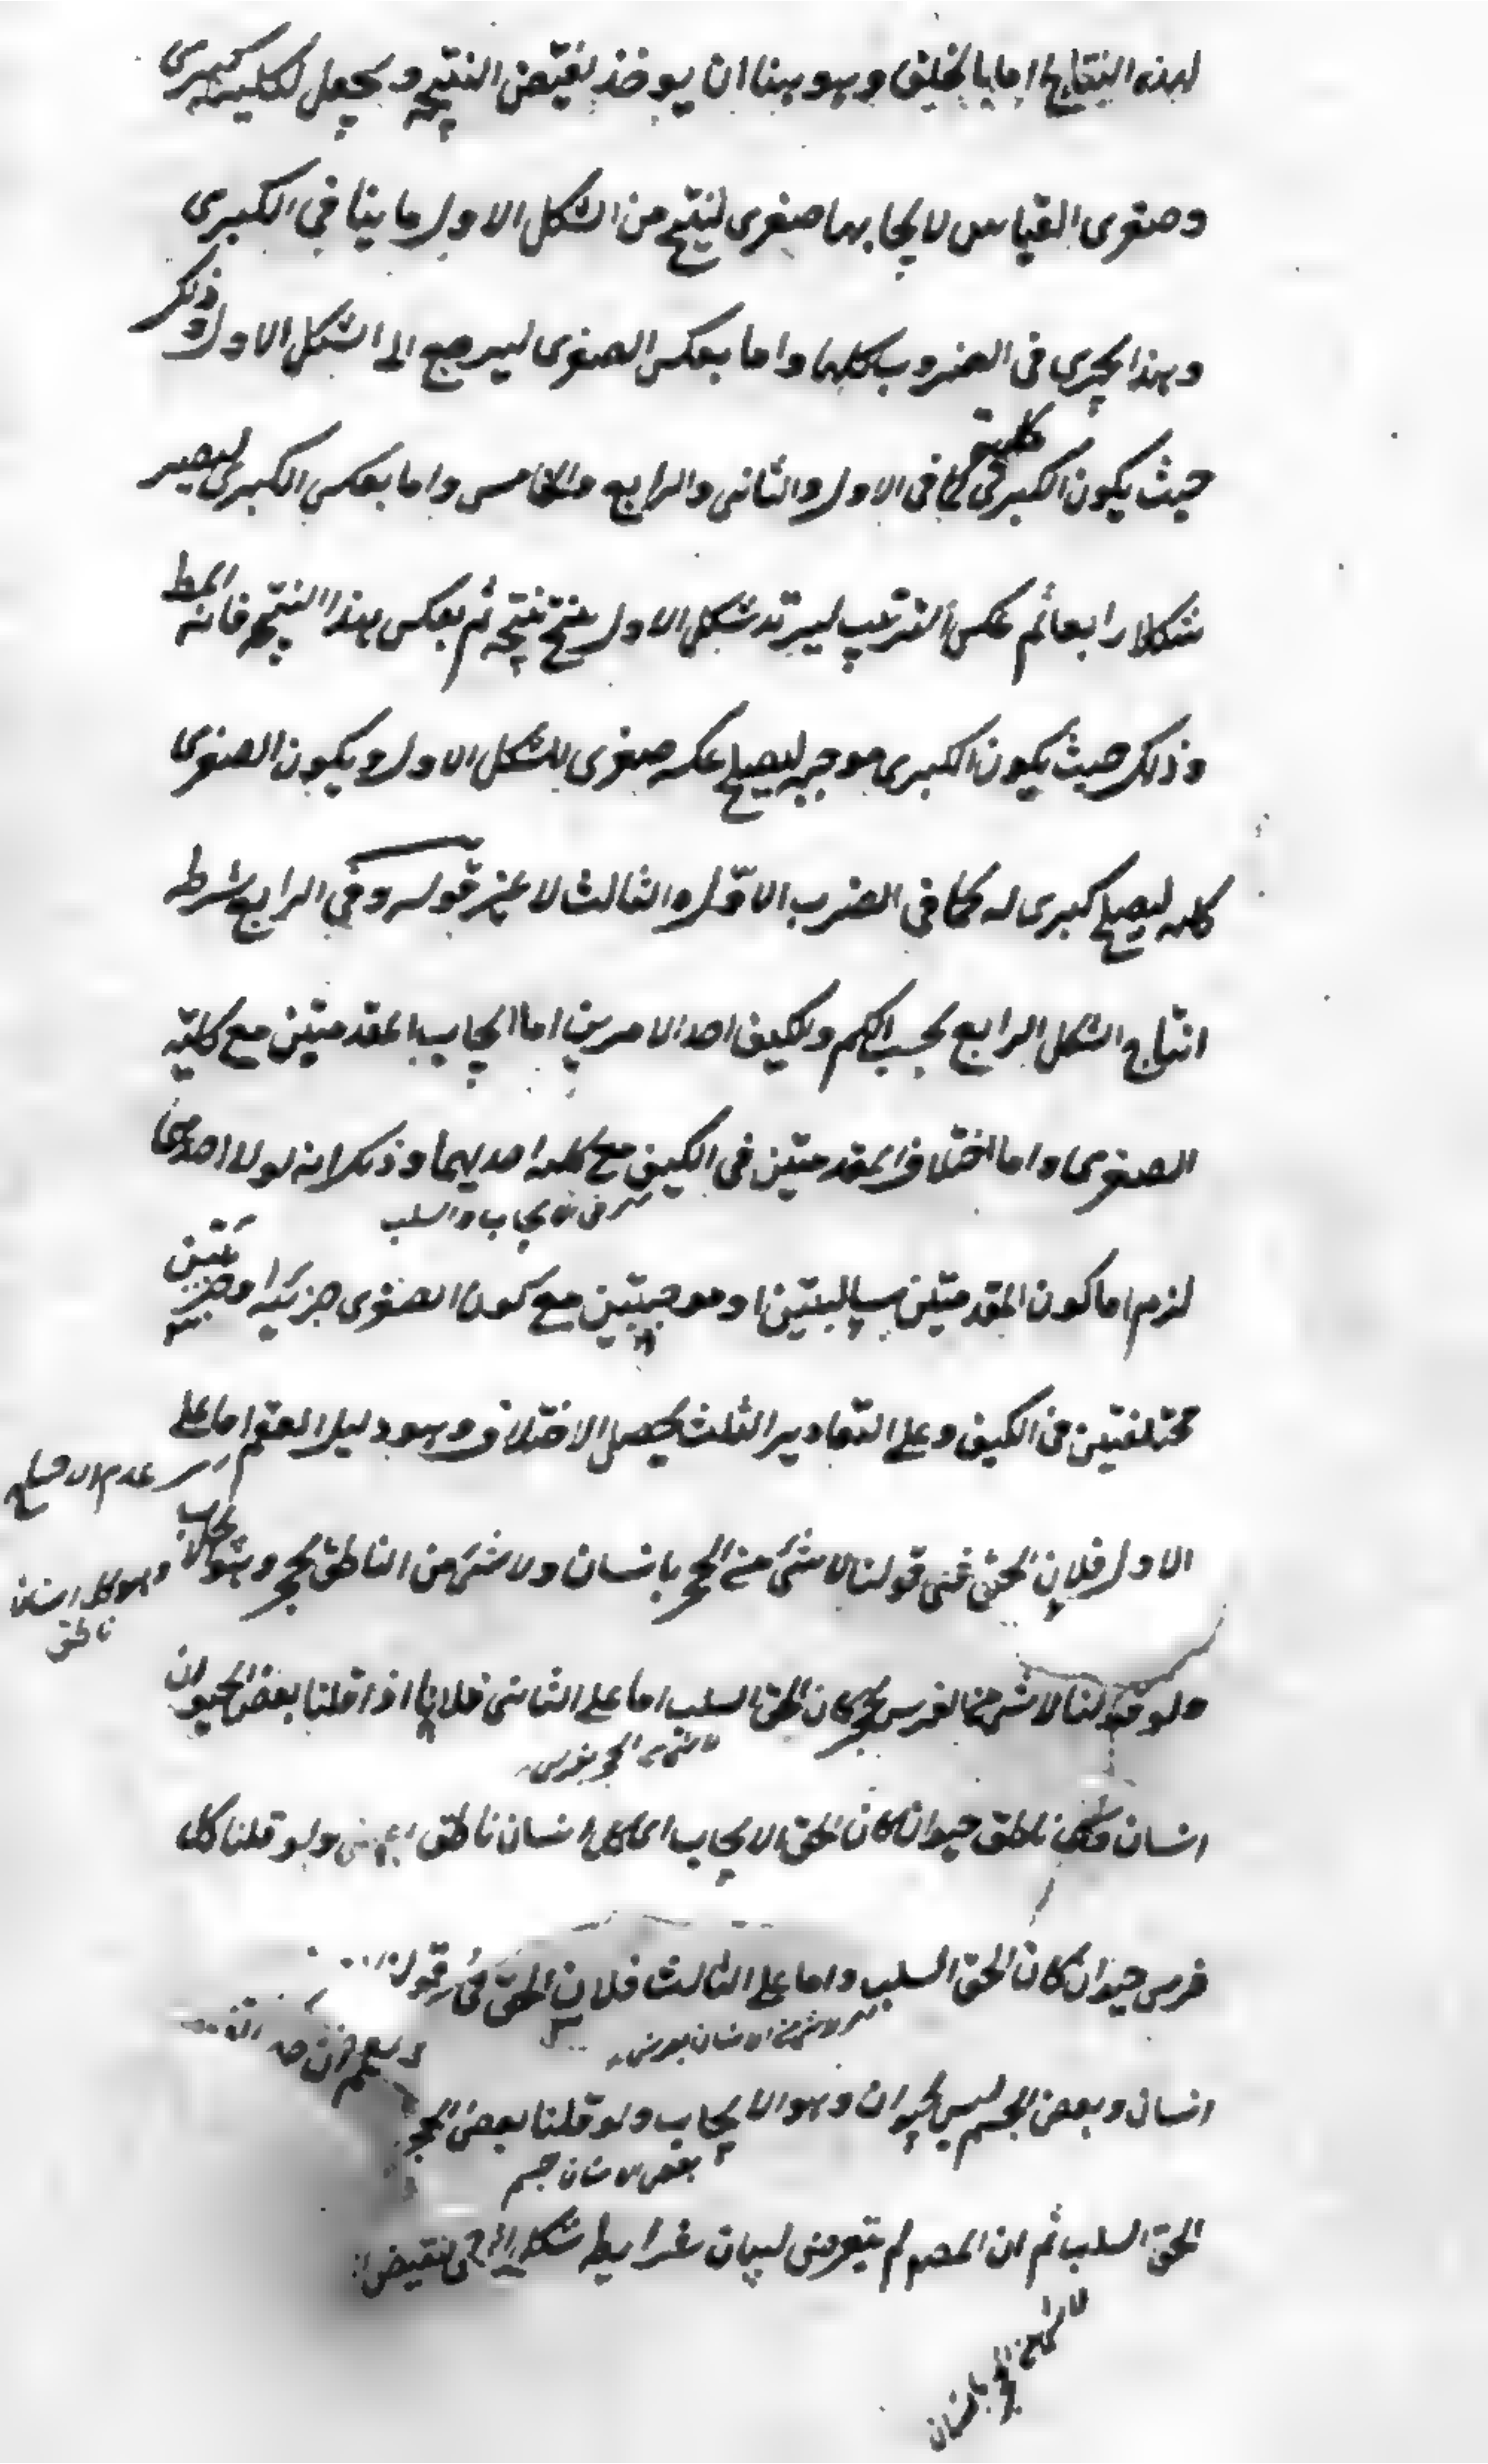 لهذه النتايج اما بالخلف وهو هنا ان يوخذ نقيض النتيجه ويجعل لكليته كبرى
وصغرى القياس لايجابها صغرى لينتج من الشكل الاول ما ينافي الكبرى
وهذا يجرى فى الضروب كلها واما بعكس الصغرى ليرجع الى الشكل الاول وذلك
حيث يكون الكبرى كلية كما فى الاول والثانى والرابع والخامس واما بعكس الكبرى ليصير
شكلا رابعا ثم عكس الترتيب ليرتد شكل الاول ينتج نتيجه ثم بعكس هذا النتيجه فانه المط
وذلك حيث يكون الكبرى موجبه ليصلح عكسه صغرى للشكل الاول ويكون الصغرى
كليه ليصلح كبرى له كما فى الضرب الاول والثالث لا غير قوله وفي الرابع شرط
انتاج الشكل الرابع بحسب الكم والكيف احد الامرين اما ايجاب المقدمتين مع كلية
الصغرى واما اختلاف المقدمتين فى الكيف مع كليه احديهما وذلك لانه لولا احدهما
فى الايجاب والسلب
لزم اما كون المقدمتين سالبتين او موجبتين مع كون الصغرى جزئيه او جزئيتين
مختلفتين فى الكيف وعلى التقادير الثلث يحصل الاختلاف وهو دليل العقم اما على
عدم الانتاج
الاول فلان الحق فى قولنا لا شئ من الحجر بانسان ولا شئ من الناطق بحجر وهو الايجاب
وهو كل انسان
ناطق
ولو قلنا لا شئ من الفرس بحجر كان الحق السلب اما على الثانى فلانا اذا قلنا بعض الحيوان
انسان وكل ناطق حيوان كان الحق الايجاب اى كل انسان ناطق ولو قلنا كل
فرس حيوان كان الحق السلب واما على الثالث فلان الحق فى قولنا
لا شئ من الانسان بفرس
انسان وبعض الجسم ليس بحيوان وهو الايجاب ولو قلنا بعض الحجر
بعض الانسان جسم
الحق السلب ثم ان المصه لم يتعرض لبيان شرايط شكل